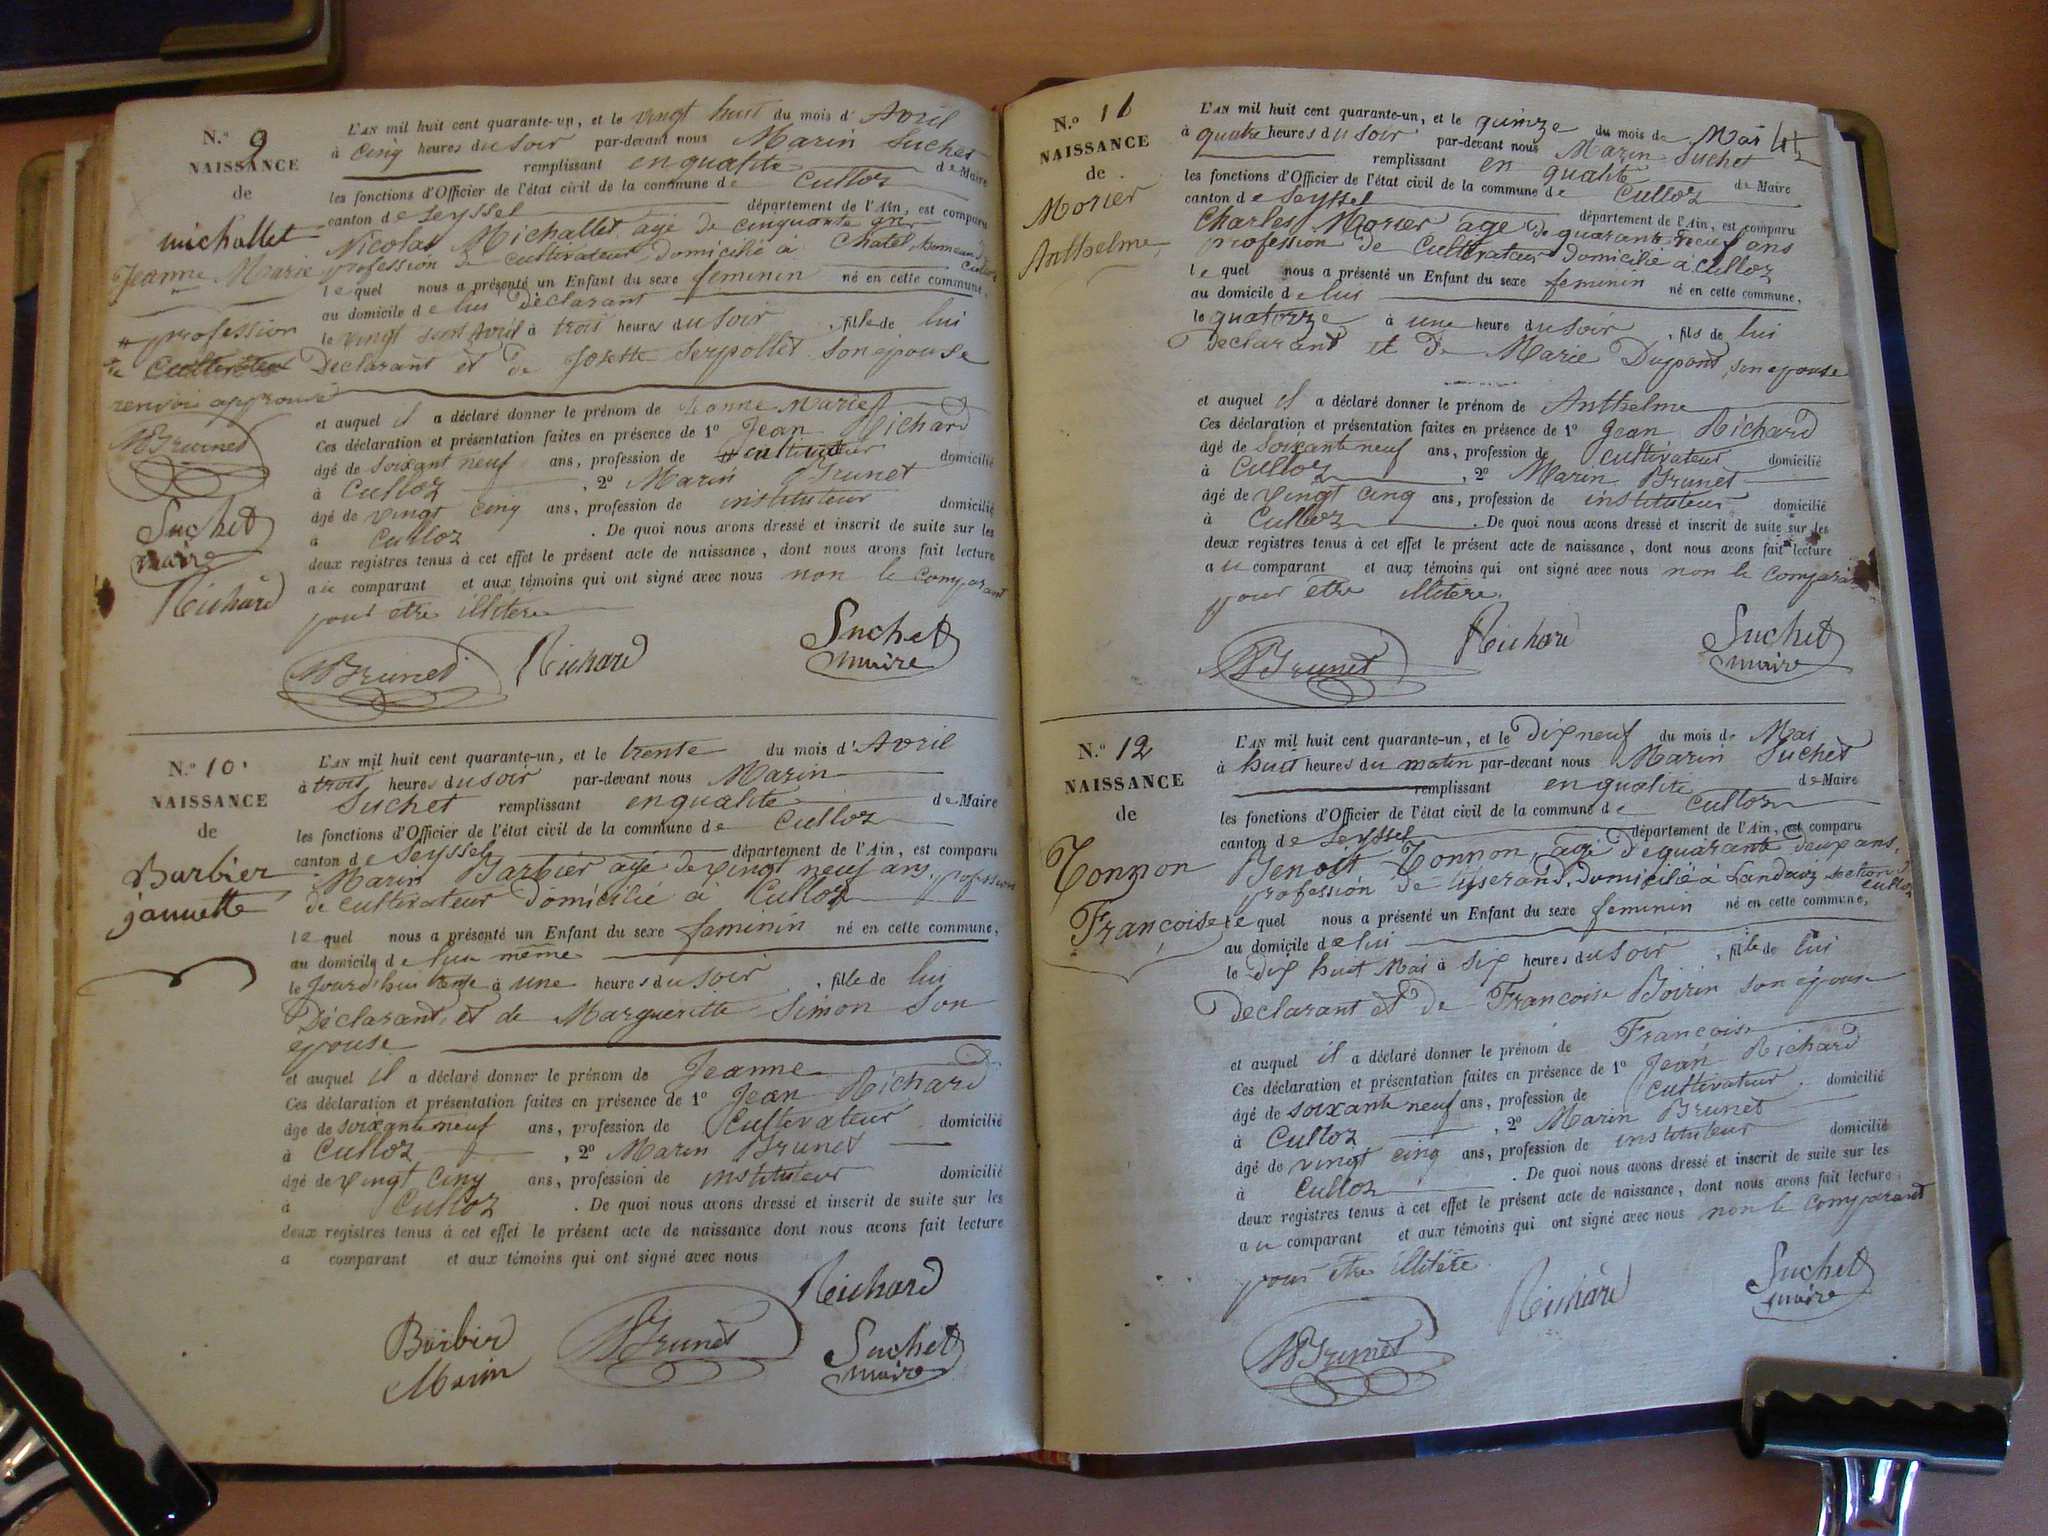 N.º 9
NAISSANCE
de
Michallet
Jeanne Marie
# profession
de Cultivateur
renvoi approuvé
MBrunet
Suchet
maire
Richard
L'AN mil huit cent quarante-un, et le vingt huit du mois d'Avril
à cinq heures du soir par-devant nous Marin Suchet
remplissant en qualité de Maire
les fonctions d'Officier de l'état civil de la commune de Culloz
canton de Seyssel département de l'Ain, est comparu
Nicolas Michallet agé de cinquante un
profession de cultivateur domicilié à Chatel
le quel nous a présenté un Enfant du sexe feminin né en cette commune,
au domicile de lui Déclarant
le vingt sept Avril à trois heures du soir, fille de lui
Declarant et de Josette Serpollet son epouse
et auquel il a déclaré donner le prénom de Jeanne Marie
Ces déclaration et présentation faites en présence de 1º Jean Richard
âgé de soixant neuf ans, profession de # cultivateur domicilié
à Culloz, 2º Marin Brunet
âgé de vingt cinq ans, profession de instituteur domicilié
à Culloz. De quoi nous avons dressé et inscrit de suite sur les
deux registres tenus à cet effet le présent acte de naissance, dont nous avons fait lecture
au comparant et aux témoins qui ont signé avec nous non le comparant
pour etre illitere
MBrunet Richard Suchet
maire
N.º 10.
NAISSANCE
de
Barbier
jannette
L'AN mil huit cent quarante-un, et le trente du mois d'Avril
à trois heures du soir par-devant nous Marin
Suchet remplissant en qualité de Maire
les fonctions d'Officier de l'état civil de la commune de Culloz
canton de Seyssel département de l'Ain, est comparu
Marin Barbier agé de vingt neuf ans, profession
de cultivateur Domicilié à Culloz
le quel nous a présenté un Enfant du sexe feminin né en cette commune,
au domicile de lui même
le jourd'hui trente à une heures du soir, fille de lui
Déclarant, et de Margueritte Simon son
epouse
et auquel il a déclaré donner le prénom de Jeanne
Ces déclaration et présentation faites en présence de 1º Jean Richard
âgé de soixante neuf ans, profession de Cultivateur domicilié
à Culloz, 2º Marin Brunet
âgé de vingt cinq ans, profession de instituteur domicilié
à Culloz. De quoi nous avons dressé et inscrit de suite sur les
deux registres tenus à cet effet le présent acte de naissance dont nous avons fait lecture
a comparant et aux témoins qui ont signé avec nous
Richard
Barbier MBrunet Suchet
Marin maire
N.º 11
NAISSANCE
de
Morier
Anthelme
L'AN mil huit cent quarante-un, et le quinze du mois de Mai
à quatre heures du soir par-devant nous Marin Suchet
remplissant en qualité de Maire
les fonctions d'Officier de l'état civil de la commune de Culloz
canton de Seyssel département de l'Ain, est comparu
Charles Morier agé de quarante neuf ans
profession de Cultivateur Domicilié à Culloz
le quel nous a présenté un Enfant du sexe feminin né en cette commune,
au domicile de lui
le quatorze à une heure du soir, fils de lui
Declarant et de Marie Dupont, son epouse
et auquel il a déclaré donner le prénom de Anthelme
Ces déclaration et présentation faites en présence de 1º Jean Richard
âgé de soixante neuf ans, profession de cultivateur domicilié
à Culloz, 2º Marin Brunet
âgé de vingt cinq ans, profession de instituteur domicilié
à Culloz. De quoi nous avons dressé et inscrit de suite sur les
deux registres tenus à cet effet le présent acte de naissance, dont nous avons fait lecture
au comparant et aux témoins qui ont signé avec nous non le comparant
pour etre illitere.
MBrunet Richard Suchet
maire
N.º 12
NAISSANCE
de
Tonzon
Françoise
L'AN mil huit cent quarante-un, et le Dix neuf du mois de Mai
à huit heures du matin par-devant nous Marin Suchet
remplissant en qualité de Maire
les fonctions d'Officier de l'état civil de la commune de Culloz
canton de Seyssel département de l'Ain, est comparu
Benoit Tonzon, agé de quarante Deux ans,
profession de tisserand, Domicilié à Landaiz section de
Culloz
le quel nous a présenté un Enfant du sexe feminin né en cette commune,
au domicile de lui
le dix huit Mai à six heures du soir, fille de lui
Declarant et de Francoise Boirin son épouse
et auquel il a déclaré donner le prénom de Francoise
Ces déclaration et présentation faites en présence de 1º Jean Richard
âgé de soixante neuf ans, profession de cultivateur domicilié
à Culloz, 2º Marin Brunet
âgé de vingt cinq ans, profession de instituteur domicilié
à Culloz. De quoi nous avons dressé et inscrit de suite sur les
deux registres tenus à cet effet le présent acte de naissance, dont nous avons fait lecture
au comparant et aux témoins qui ont signé avec nous non le comparant
pour etre illitere
MBrunet Richard Suchet
maire